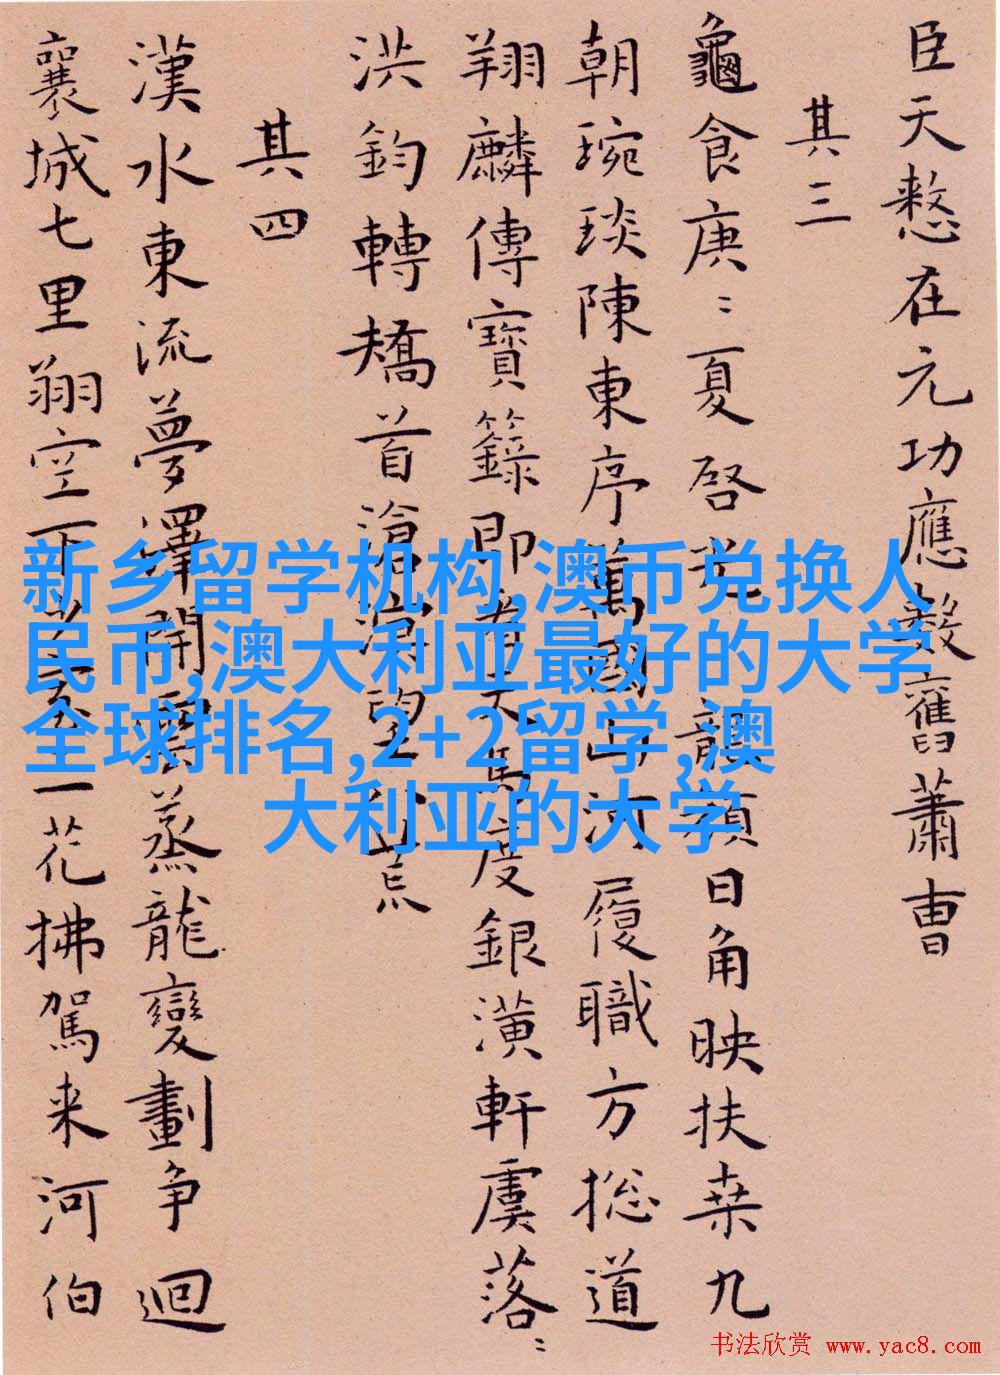 臣天憗在元功應數舊蕭曹
其三
龜食庚〻夏啓光龍顏日角映扶桒九
朝琬琰陳東序萬國山河履職方捴道
翔麟傳寶籙即天馬度銀潢軒虞落〻
洪鈞轉矯首滄溟望荒
其四
漢水東流夢澤開雲蒸龍變劃争迴
襄城七里翔空下一花拂駕来河伯
新乡留学机构,澳币兑换人
民币,澳大利亚最好的大学
全球排名,2+2留学,澳
大利亚的大学
书法欣赏 www.yac8.com